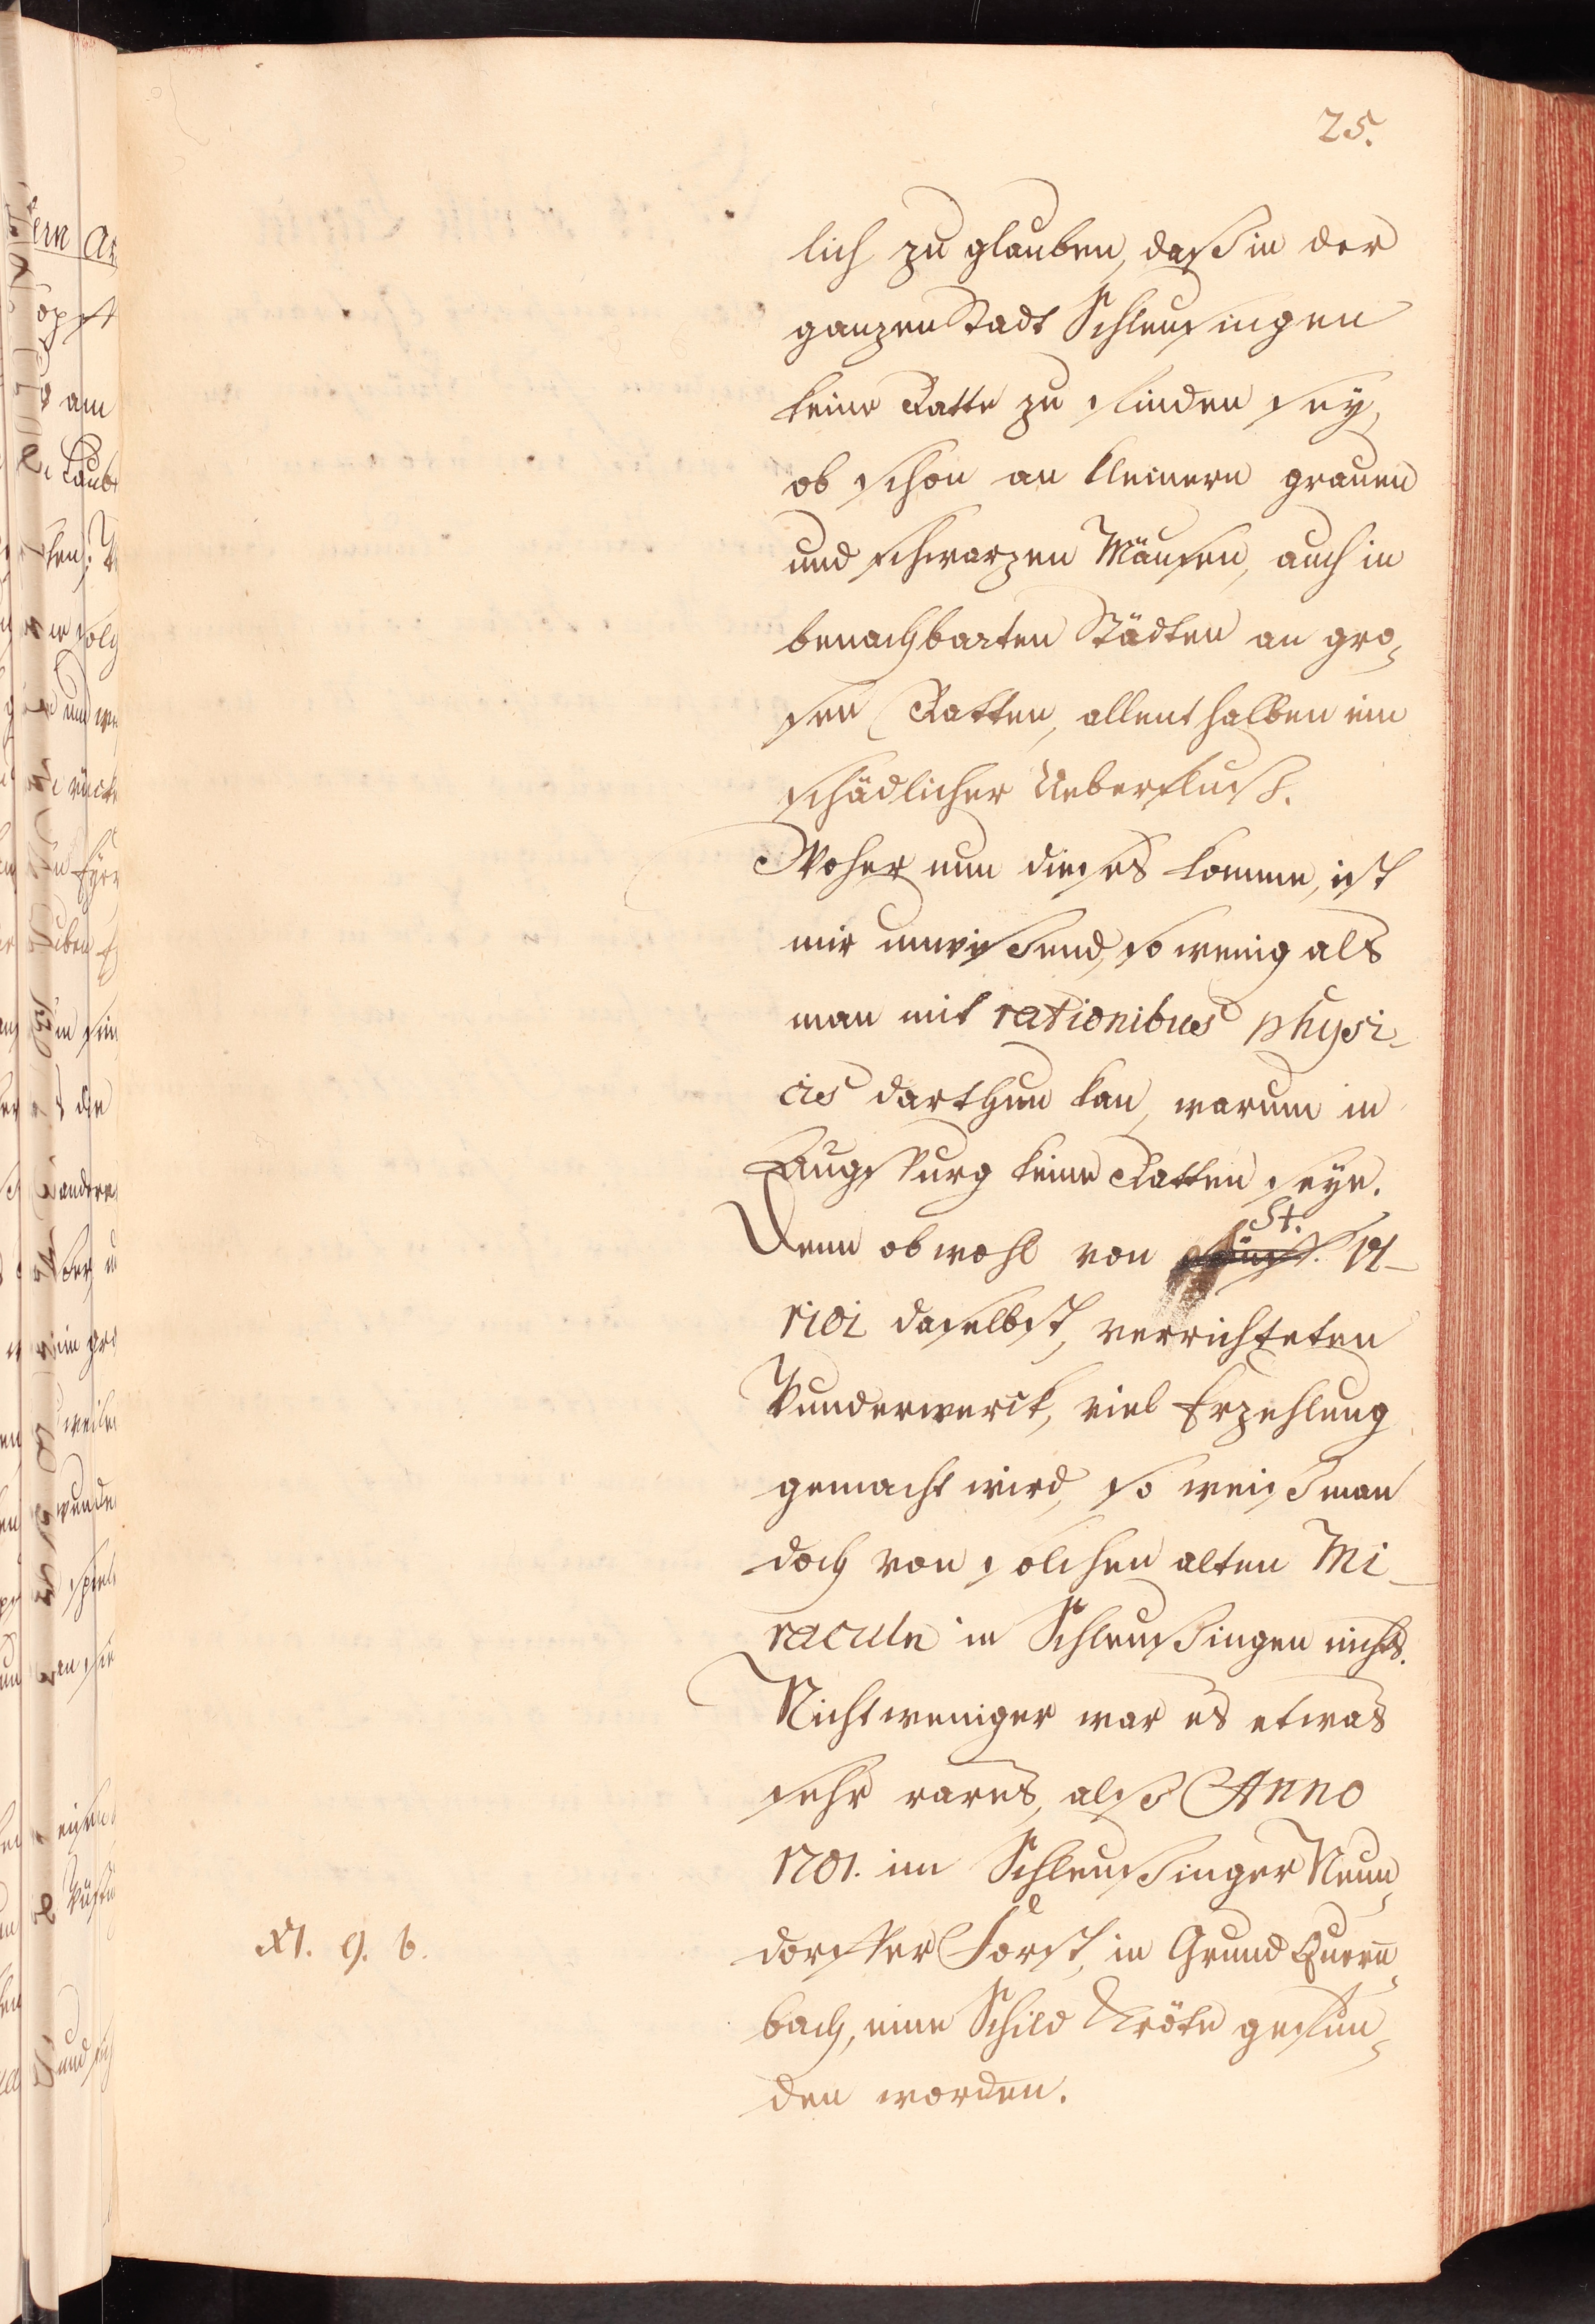 25.
lich zu glauben, daß in der
ganzen Stadt Schleusingen
keine Ratte zu finden sey,
ob schon an kleinern grauen
und schwarzen Mäusen, auch in
benachbarten Städten an gro-
sen Ratten, allenthalben ein
schädlicher Ueberfluß.
Woher nun dieses komme, ist
mir unwißend, so wenig als
man mit rationibus physi-
cis darthun kan, warum in
Augspurg keine Ratten seyn.
Denn obwohl von St. Ul-
rici daselbst, verrichteten
Wunderwerck, viel Erzehlung
gemacht wird, so weiß man
doch von solchen alten Mi-
racula in Schleußingen nichts.
Nicht weniger war es etwas
sehr rares, alß Anno
1701. im Schleußinger Neun-
dorffer Forst, in Grund Quern-
bach, eine Schild Kröte gefun-
den worden.